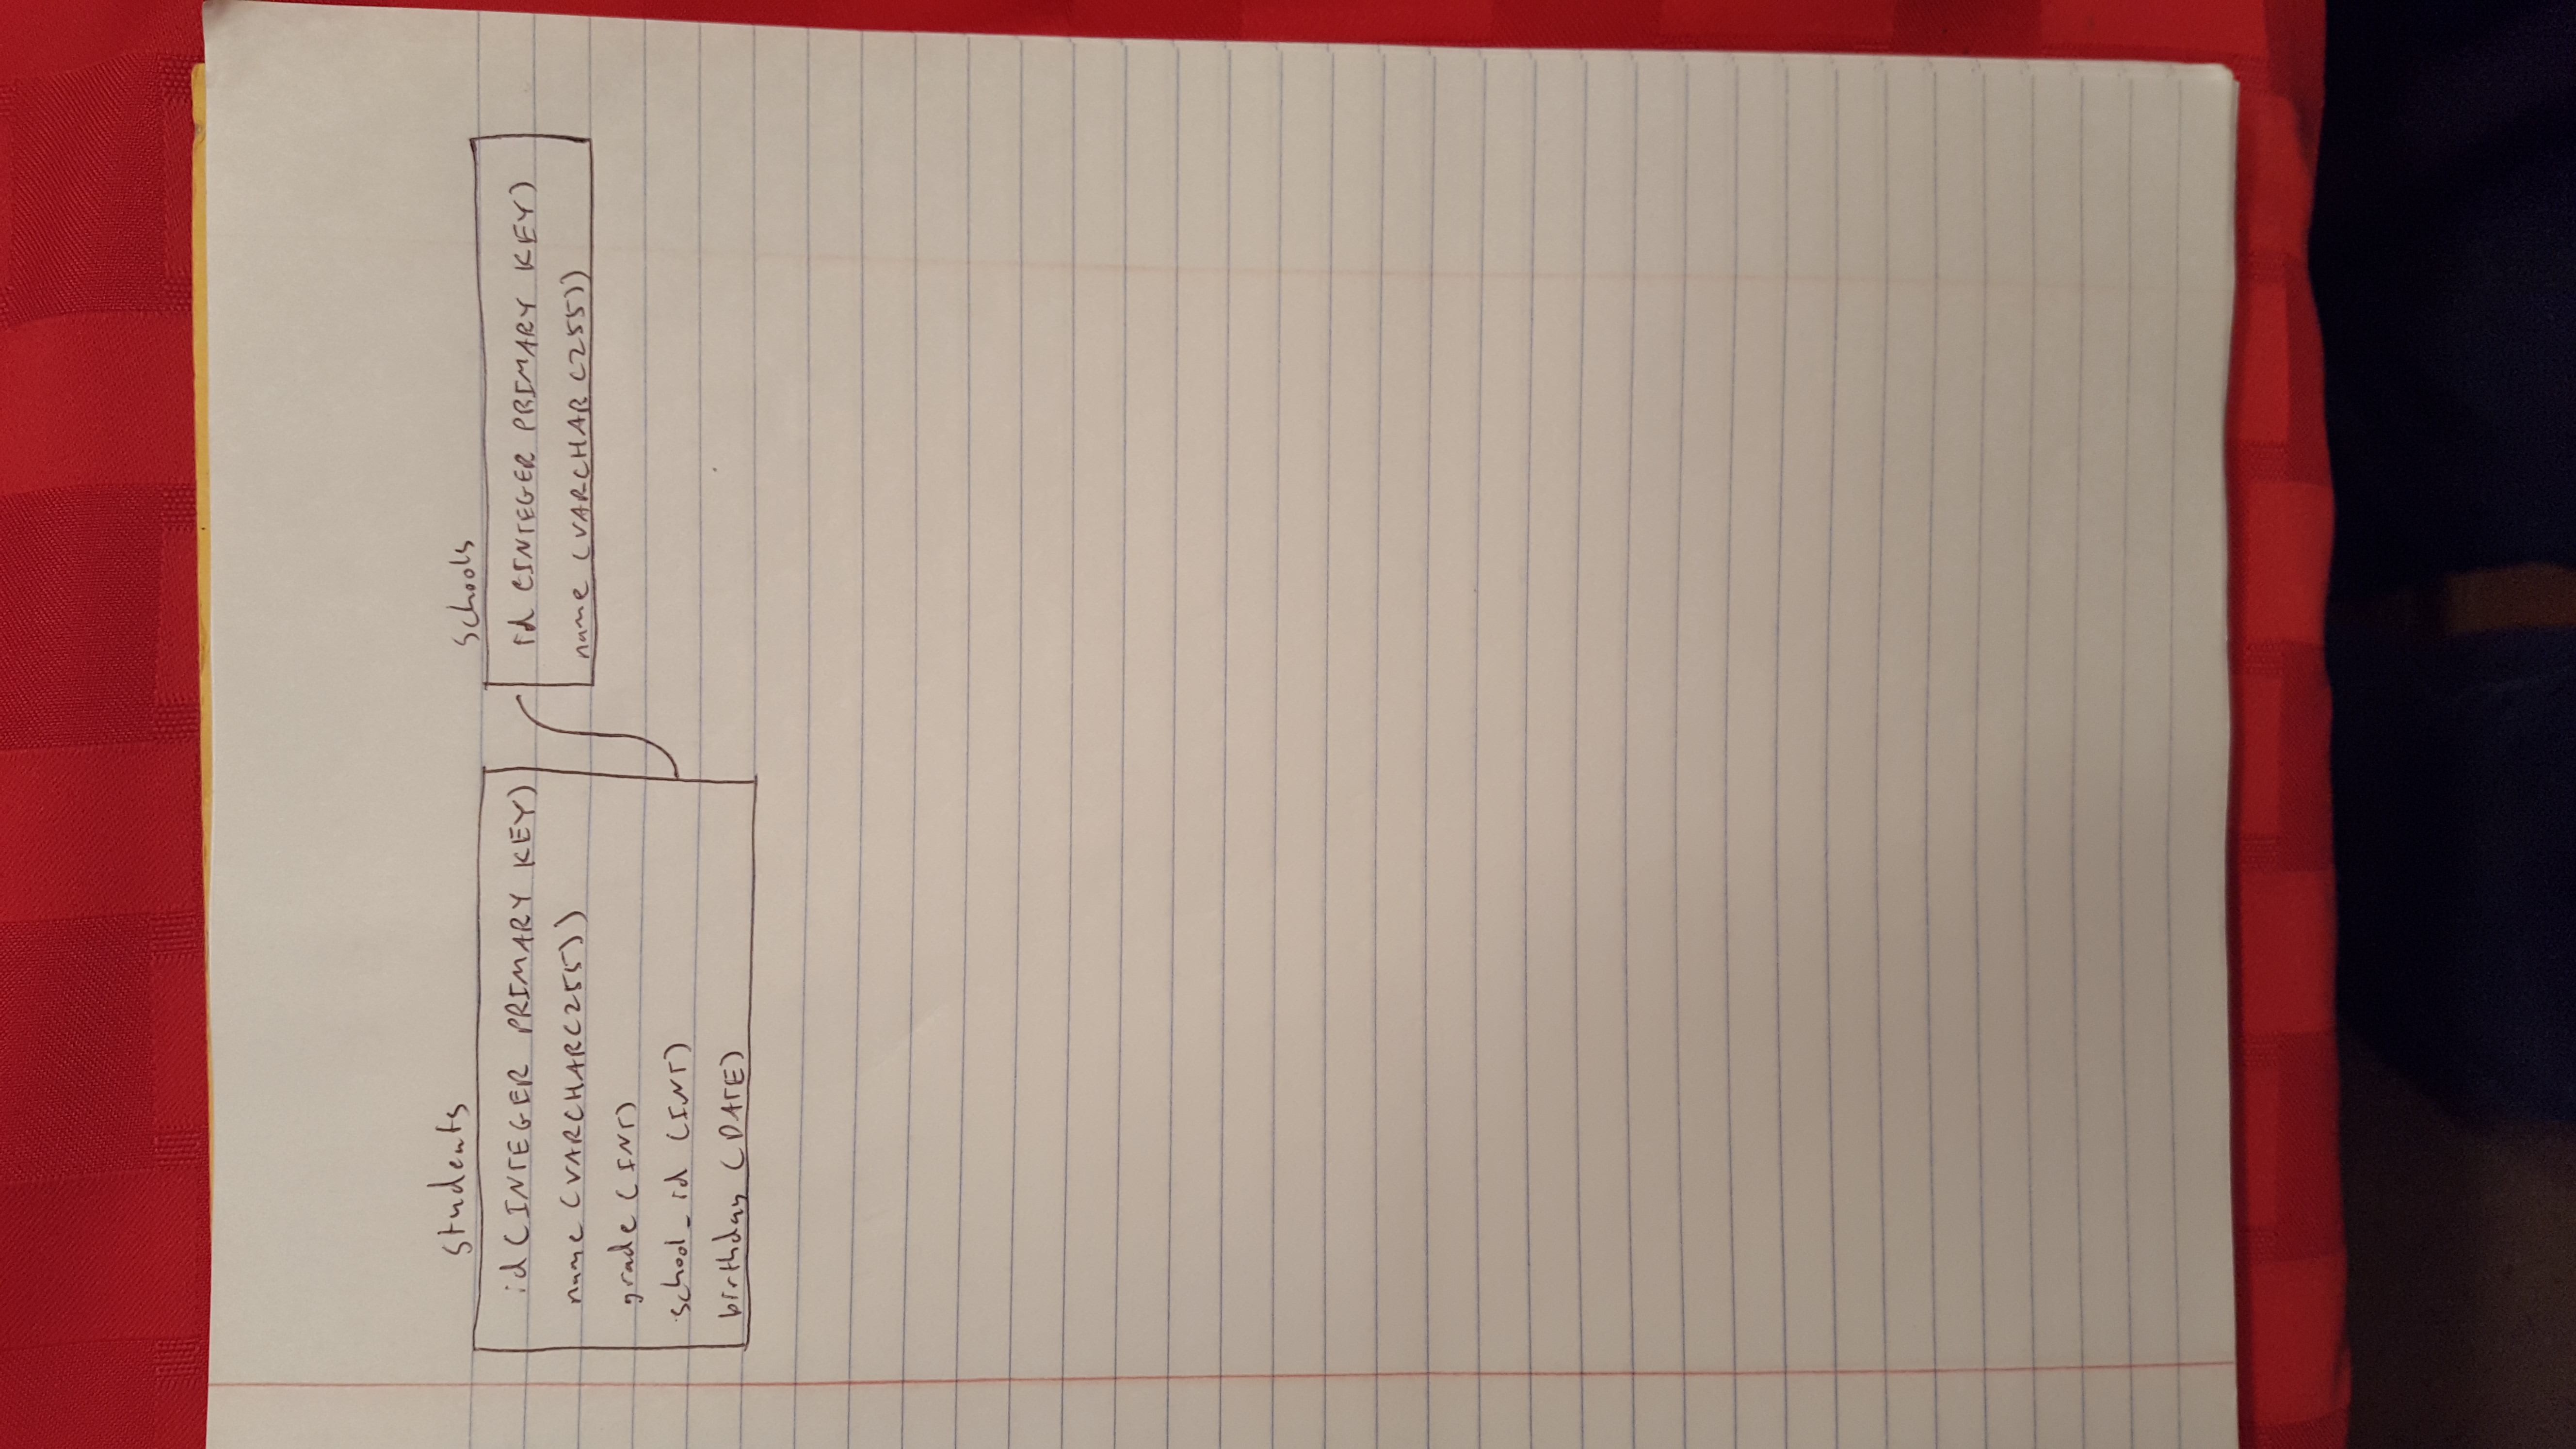 students
id (INTEGER PRIMARY KEY)
name (VARCHAR(255))
grade (INT)
school_id (INT)
birthday (DATE)
schools
id (INTEGER PRIMARY KEY)
name (VARCHAR (255))